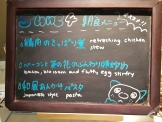 朝食メニュー
鶏肉のさっぱり煮 refreshing chicken
stew
ベーコンと菜の花のふんわり卵炒め
bacon, blossom and fluffy egg stirfry
和風あんかけパスタ
Japanese style pasta